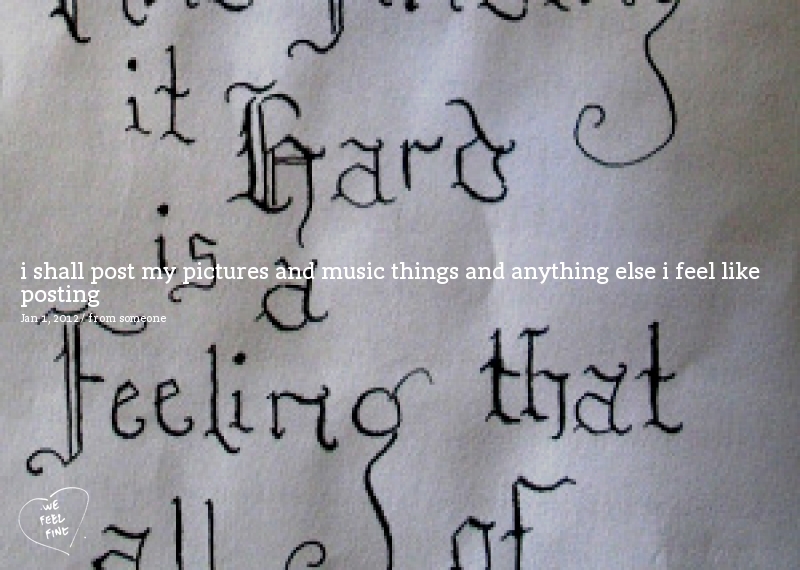 it Hard
is a
i shall post my pictures and music things and anything else i feel like
posting
Jan 1, 2012 / from someone
Feeling that
all of
WE
FEEL
FINE